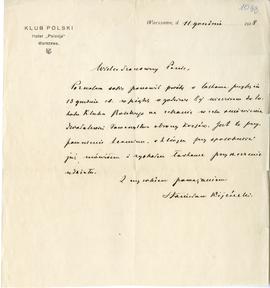 1048
KLUB POLSKI
Hotel „Polonja"
Warszawa.
Warszawa, d. 11 grudnia 1918
Wielce Szanowny Panie.
Pozwalam sobie ponowić prośbę o łaskawe przybycie
13 grudnia rb. w piątek o godzinie 6½ wieczorem do lo-
kalu Klubu Polskiego na zebranie w celu omówienia
działalności Towarzystwa obrony kresów. Jest to przy-
pomnienie terminu, o którym przy sposobności
już mówiłem i rychłem łaskawe przyrzeczenie
udziału.
Z wysokiem poważaniem
Stanisław